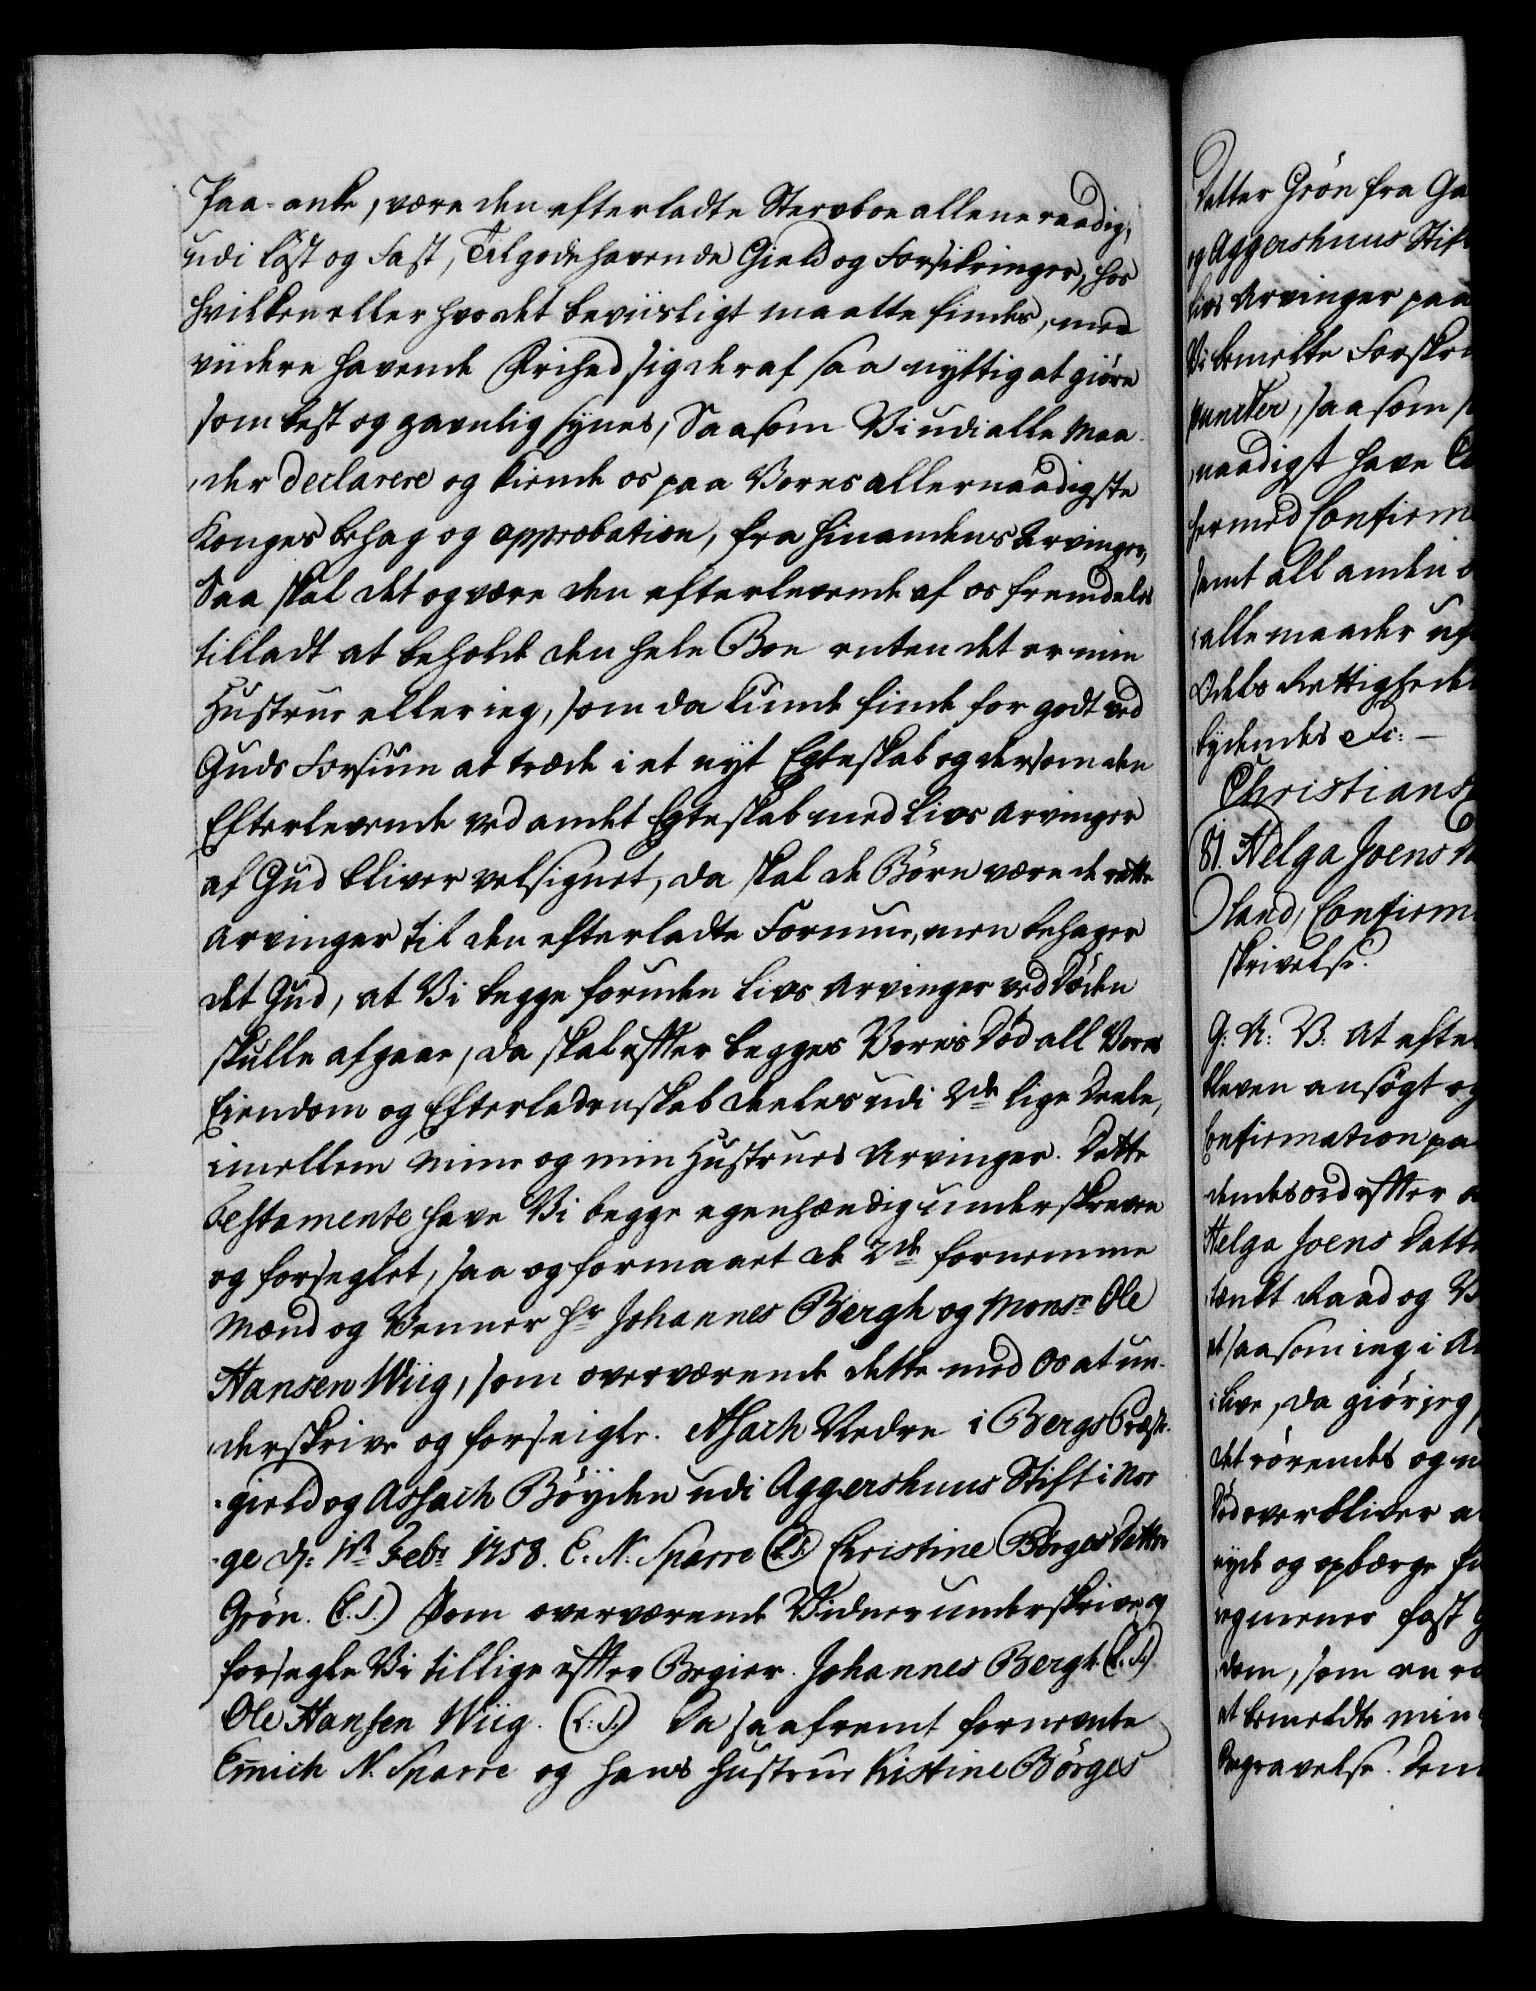 Paa-anke, være den efterladte Sterboe allene raadig,
udi Løst og Fast, Tilgodehavende Gield og Forsikringer, hos
hvilken eller hvor det beviisligt maatte findes, med
viidere havende Frihed sig deraf saa nyttig at giøre
som best og gavnlig synes, Saasom Vi udi alle Maa-
der declarere og kiende os paa Vores allernaadigste
Konges behag og approbation, fra hinandens Arvinger,
Saa skal det og være den efterlevende af os fremdeles
tilladt at beholde den hele Boe enten det er min
Hustrue eller ieg, som da kunde finde for godt ved
Guds Forsiun at træde i et nyt Egteskab og dersom den
Efterlevende ved andet Egteskab med Livs Arvinger
af Gud bliver velsignet, da skal de Børn være de rette
Arvinger til den efterladte Formue, men behager
det Gud, at Vi begge foruden Livs Arvinger ved Døden
skulle afgaae, da skal efter begges Vores Død all Vores
Eiendom og Efterladenskab deeles udi 2de lige Deele,
imellem mine og min Hustrues Arvinger. Dette
Testamente have Vi begge egenhændig underskreven
og forseglet, saa og formaaet de 2de fornemme
Mænd og Venner Hr Johannes Bergh og Monsr Ole
Hansen Wiig, som overværende dette med Os at un-
derskrive og forseigle. Asach Nedre i Bergs Præste-
gield og Assach Bøyden udi Aggershuus Stift i Nor
-ge d: 1te Febr 1758. E. N. Sparre (L.S.) Christine Børges Datter
Grøn. (L.S.) Som overværende Vidner underskrive og
forsegle Vi tillige efter Begier. Johannes Bergh. (L.S.)
Ole Hansen Wiig. (L:S.) Da saafremt fornevnte
Emich N. Sparre og hans Hustrue Kistine Børges
Datter Grøn fra Ga
og Aggershuus Stift
livs Arvinger paa
Vi bemelte Forskri
puncter, saasom
naadigst have
hermed Confirm
samt all anden
i alle maader
Odels Rettighed
bydendes Fr: –
Christians
81. Helga Joens
land, Confirm
skrivelse.
G: A: V: At efter
bleven ansøgt og
Confirmation pa
dendes ord efter
Helga Joens Datt
tænkt Raad og
at saasom ieg i
i live, da giør jeg
det rørendes og
Død overbliver
nyde og opbærge
ieg mener fast
dom, som
at bemeldte min
Begravelse. Dem